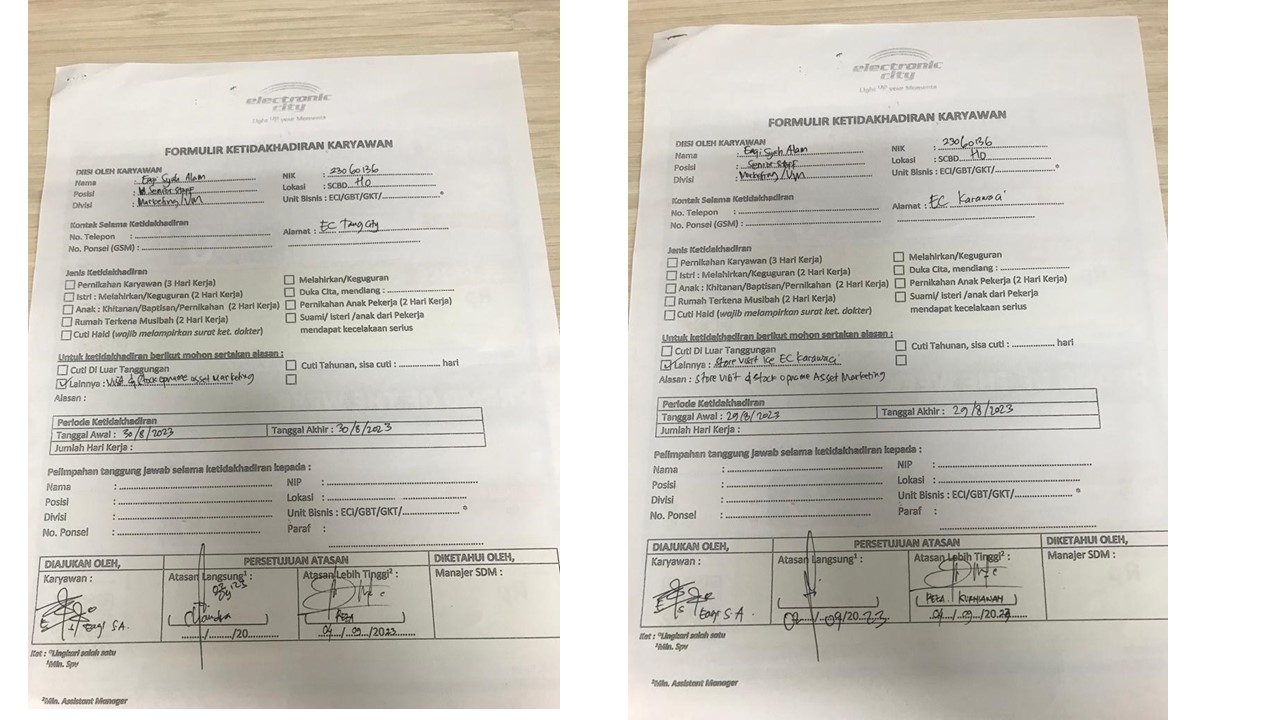 electronic
city
Light Up your Moments
FORMULIR KETIDAKHADIRAN KARYAWAN
DIISI OLEH KARYAWAN
Nama : Eagi Syah Alam
Posisi : Senior Staff
Divisi : Marketing/VM
NIK : 23060136
Lokasi : SCBD HO
Unit Bisnis : ECI/GBT/GKT/
Kontak Selama Ketidakhadiran
No. Telepon :
No. Ponsel (GSM) :
Alamat : EC TangCity
Jenis Ketidakhadiran
Pernikahan Karyawan (3 Hari Kerja)
Istri : Melahirkan/Keguguran (2 Hari Kerja)
Anak : Khitanan/Baptisan/Pernikahan (2 Hari Kerja)
Rumah Terkena Musibah (2 Hari Kerja)
Cuti Haid (wajib melampirkan surat ket. dokter)
Melahirkan/Keguguran
Duka Cita, mendiang :
Pernikahan Anak Pekerja (2 Hari Kerja)
Suami/ Isteri /anak dari Pekerja
mendapat kecelakaan serius
Untuk ketidakhadiran berikut mohon sertakan alasan :
Cuti Di Luar Tanggungan
Cuti Tahunan, sisa cuti : hari
Lainnya : Visit & Stock opname asset Marketing
Alasan :
Periode Ketidakhadiran
Tanggal Awal : 30/8/2023 Tanggal Akhir : 30/8/2023
Jumlah Hari Kerja :
Pelimpahan tanggung jawab selama ketidakhadiran kepada :
Nama :
Posisi :
Divisi :
No. Ponsel :
NIP :
Lokasi :
Unit Bisnis : ECI/GBT/GKT/
Paraf :
DIAJUKAN OLEH, PERSETUJUAN ATASAN DIKETAHUI OLEH,
Karyawan : Atasan Langsung¹ : Atasan Lebih Tinggi² : Manajer SDM :
Eagi S.A. Chandra REZA
/ /20 04/09/2023
Ket : °Lingkari salah satu
¹Min. Spv
²Min. Assistant Manager
electronic
city
Light Up your Moments
FORMULIR KETIDAKHADIRAN KARYAWAN
DIISI OLEH KARYAWAN
Nama : Eagi Syah Alam
Posisi : Senior Staff
Divisi : Marketing/VM
NIK : 23060136
Lokasi : SCBD HO
Unit Bisnis : ECI/GBT/GKT/
Kontak Selama Ketidakhadiran
No. Telepon :
No. Ponsel (GSM) :
Alamat : EC Karawaci
Jenis Ketidakhadiran
Pernikahan Karyawan (3 Hari Kerja)
Istri : Melahirkan/Keguguran (2 Hari Kerja)
Anak : Khitanan/Baptisan/Pernikahan (2 Hari Kerja)
Rumah Terkena Musibah (2 Hari Kerja)
Cuti Haid (wajib melampirkan surat ket. dokter)
Melahirkan/Keguguran
Duka Cita, mendiang :
Pernikahan Anak Pekerja (2 Hari Kerja)
Suami/ Isteri /anak dari Pekerja
mendapat kecelakaan serius
Untuk ketidakhadiran berikut mohon sertakan alasan :
Cuti Di Luar Tanggungan
Cuti Tahunan, sisa cuti : hari
Lainnya : Store Visit ke EC Karawaci
Alasan : Store Visit & Stock opname Asset Marketing
Periode Ketidakhadiran
Tanggal Awal : 29/8/2023 Tanggal Akhir : 29/8/2023
Jumlah Hari Kerja :
Pelimpahan tanggung jawab selama ketidakhadiran kepada :
Nama :
Posisi :
Divisi :
No. Ponsel :
NIP :
Lokasi :
Unit Bisnis : ECI/GBT/GKT/
Paraf :
DIAJUKAN OLEH, PERSETUJUAN ATASAN DIKETAHUI OLEH,
Karyawan : Atasan Langsung¹ : Atasan Lebih Tinggi² : Manajer SDM :
Eagi S.A. REZA KURNIAWAN
02/09/2023 04/09/2023
Ket : °Lingkari salah satu
¹Min. Spv
²Min. Assistant Manager